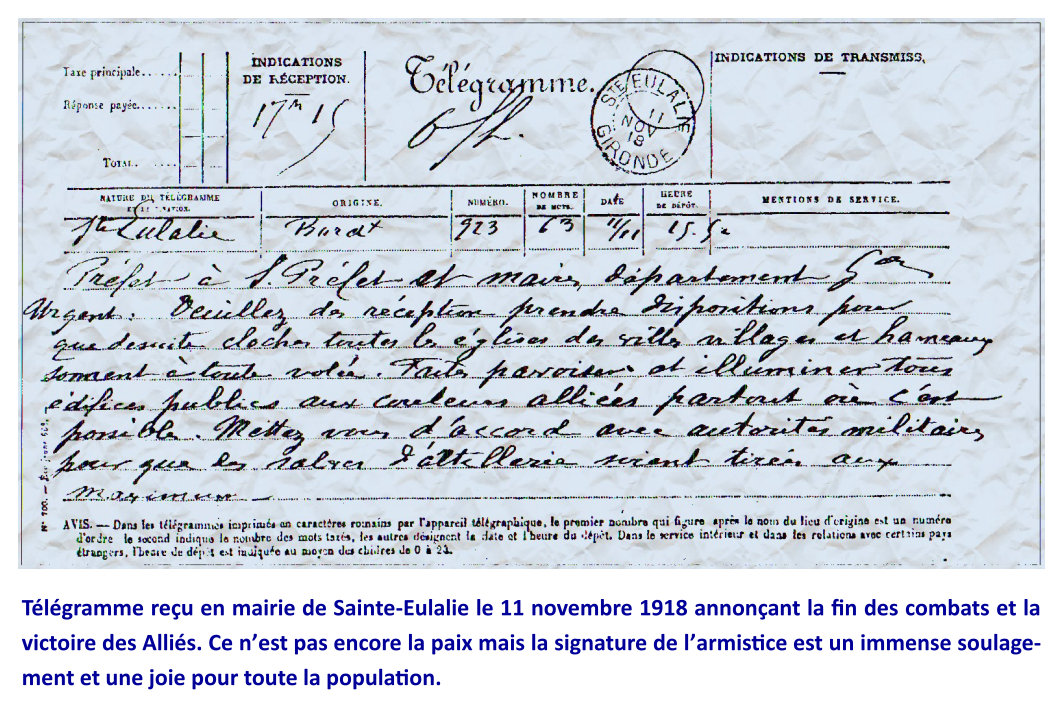 Taxe principale......
Réponse payée......
Total.. ....
INDICATIONS
DE RÉCEPTION.
17h 15
Télégramme.
STE EULALIE
11
NOV
18
GIRONDE
INDICATIONS DE TRANSMISS,
NATURE DU TÉLÉGRAMME
ET DESTINATION.
ORIGINE.
NUMÉRO.
NOMBRE
DE MOTS.
DATE
HEURE
DE DÉPÔT.
MENTIONS DE SERVICE.
Ste Eulalie
Bordx
923
63
11/11
15.50
Préfet à S. Préfet et maires département Gde
Urgent : Veuillez dès réception prendre dispositions pour
que desuite cloches toutes les églises des villes villages et hameaux
sonnent à toute volée. Faites pavoiser et illuminer tous
édifices publics aux couleurs alliées partout où c'est
possible. Mettez vous d'accord avec autorités militaires
pour que les salves d'attellerie soient tirées aux
maximum –
AVIS. — Dans les télégrammes imprimés en caractères romains par l'appareil télégraphique, le premier nombre qui figure après le nom du lieu d'origine est un numéro
d'ordre le second indique le nombre des mots taxés, les autres désignent la date et l'heure du dépôt. Dans le service intérieur et dans les relations avec certains pays
étrangers, l'heure de dépôt est indiquée au moyen des chiffres de 0 à 24.
Télégramme reçu en mairie de Sainte-Eulalie le 11 novembre 1918 annonçant la fin des combats et la
victoire des Alliés. Ce n'est pas encore la paix mais la signature de l'armistice est un immense soulage-
ment et une joie pour toute la population.